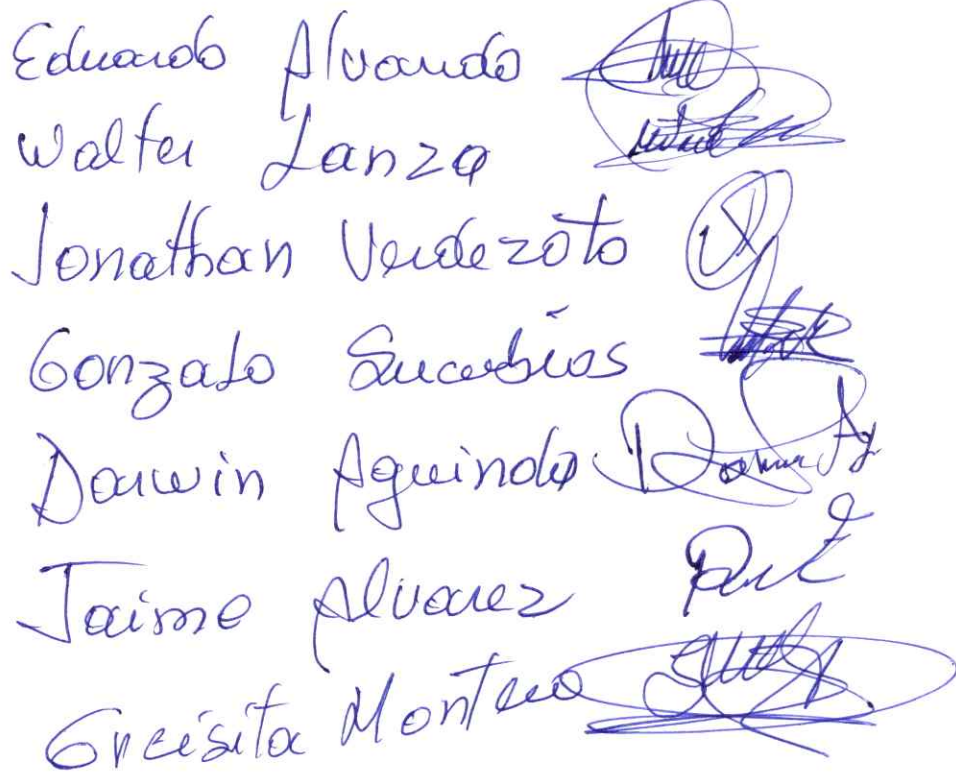 Eduardo Alvarado
Walter Lanza
Jonathan Verdezoto
Gonzalo Sucubios
Darwin Aguinda
Jaime Alvarez
Greisita Montero